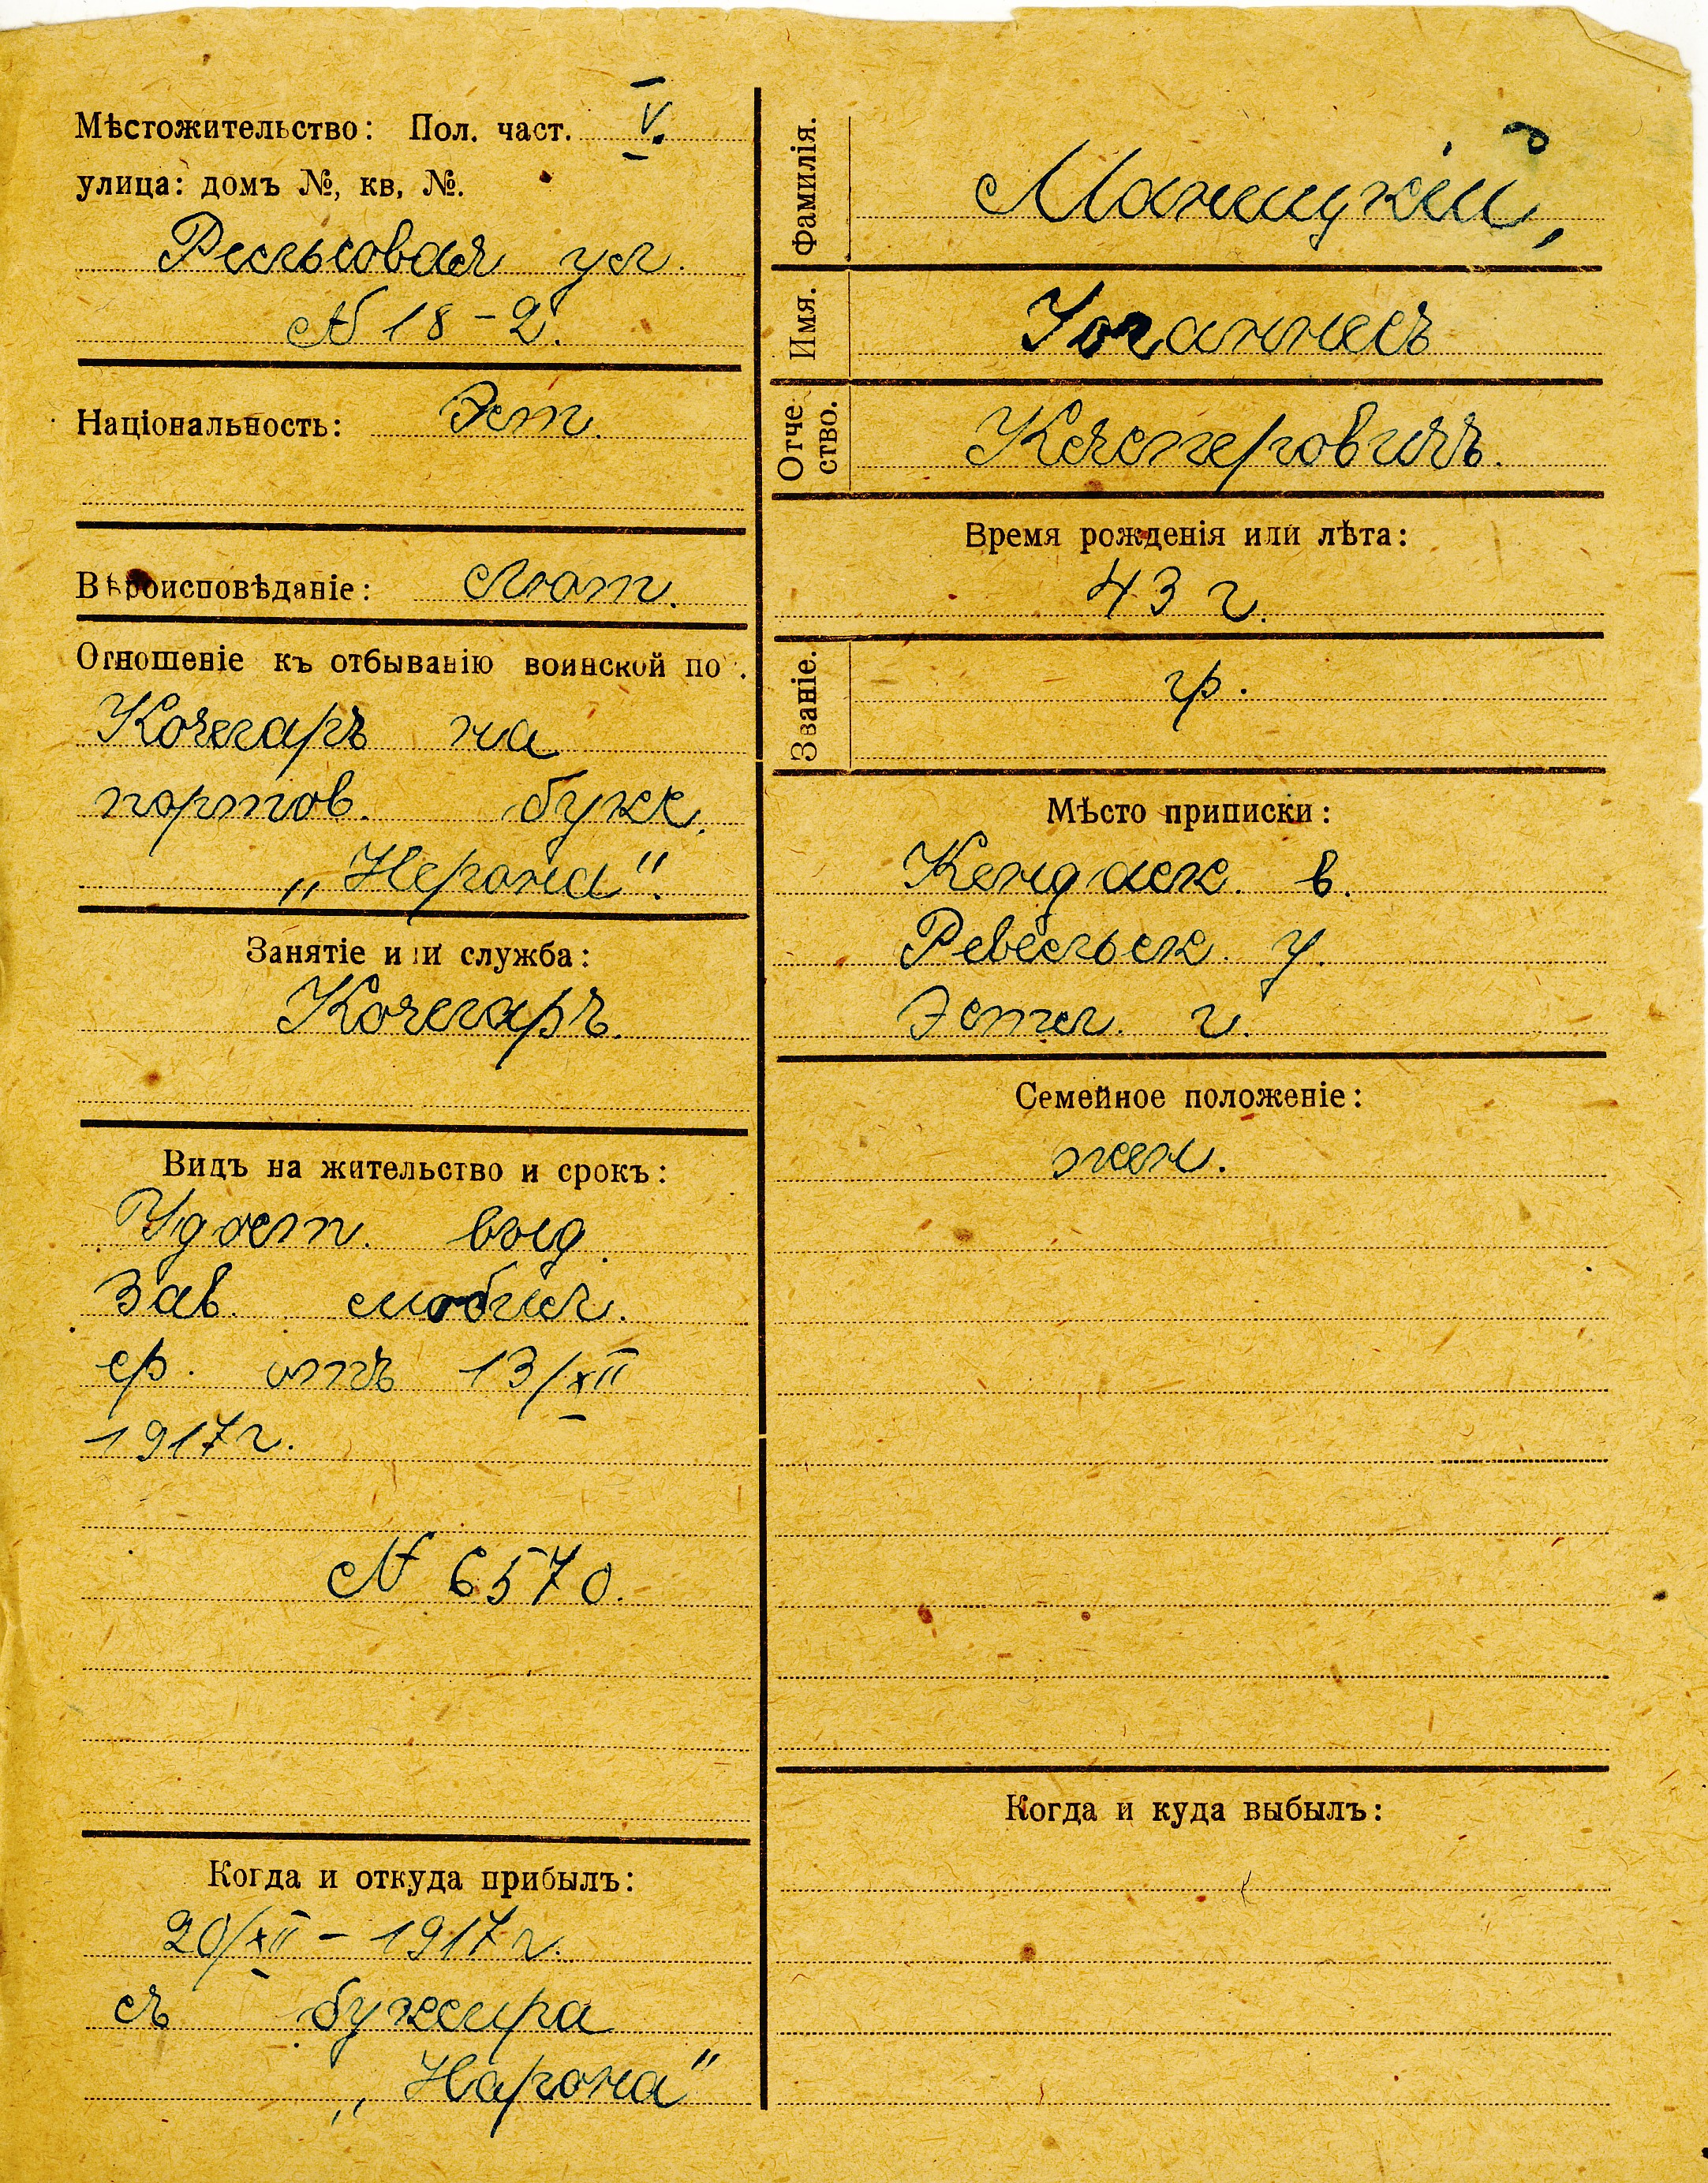 Мѣстожительство: Пол. част. V.
улица: домъ №, кв, №.
Рельсовая ул.
№ 18-2.
Національность: Эст.
Вѣроисповѣданіе: Лют.
Отношеніе къ отбыванію воинской по .
Кочегаръ на
портов. букс.
„Нерона".
Занятіе или служба:
Кочегаръ.
Видъ на жительство и срокъ:
Удост. выд.
Зав. мобил.
ср. отъ 13/XII
1917 г.
№ 6570.
Когда и откуда прибылъ:
20/XII - 1917 г.
съ буксира
„Нарона"
Фамилія.
Маницкій,
Имя.
Іоганнесъ
Отче
ство.
Касперовичъ.
Время рожденія или лѣта:
43 г.
Званіе.
гр.
Мѣсто приписки:
Кендаск. в.
Ревельск. у.
Эстл. г.
Семейное положеніе:
жен.
Когда и куда выбылъ: